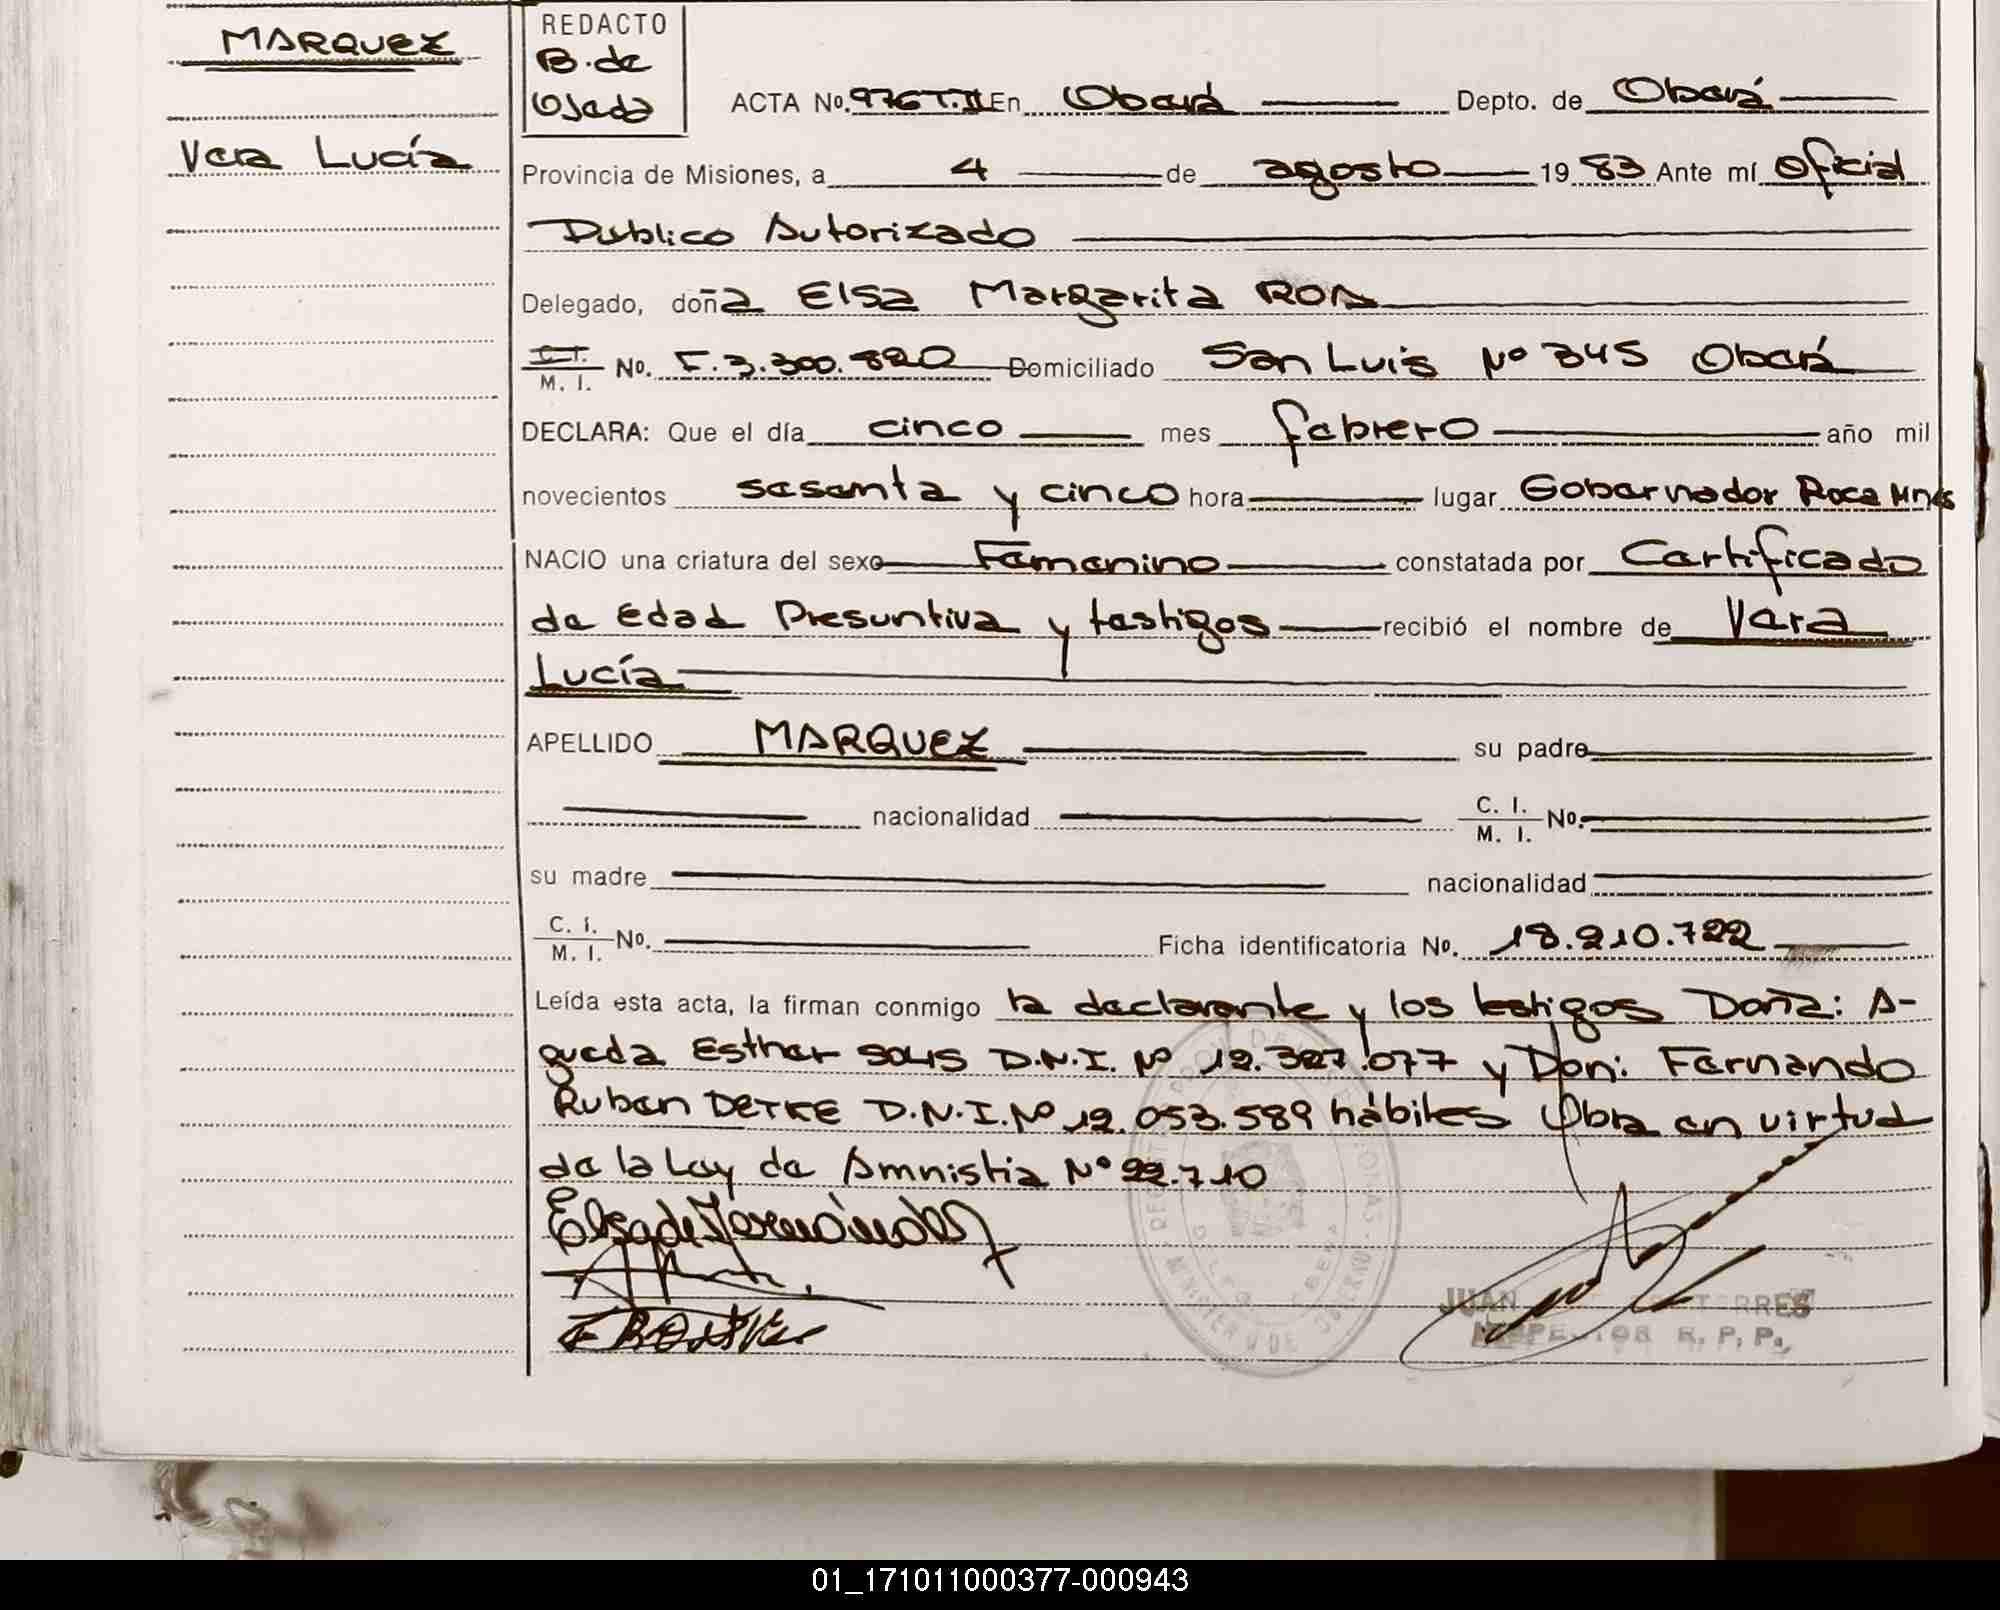 MARQUEZ
Vera Lucía
REDACTO
B. de
Ojeda
ACTA No. 976 T.II En Oberá Depto. de Oberá
Provincia de Misiones, a 4 de agosto 19 83 Ante mí Oficial
Publico Autorizado
Delegado, doña Elsa Margarita ROA
C. I. / M. I. No. F.3.300.820 Domiciliado San Luis Nº 345 Oberá
DECLARA: Que el día cinco mes febrero año mil
novecientos sesenta y cinco hora lugar Gobernador Roca Mnes
NACIO una criatura del sexo Femenino constatada por Certificado
de Edad Presuntiva y testigos recibió el nombre de Vera
Lucía
APELLIDO MARQUEZ su padre
nacionalidad C. I. / M. I. No.
su madre nacionalidad
C. I. / M. I. No. Ficha identificatoria No. 18.210.722
Leída esta acta, la firman conmigo la declarante y los testigos Doña: A-
gueda Esther SOLIS D.N.I. Nº 12.327.077 y Don: Fernando
Ruben DETKE D.N.I. Nº 12.053.589 hábiles Obra en virtud
de la Ley de Amnistia Nº 22.710
JUAN TORRES
INSPECTOR R. P. P.
01_171011000377-000943